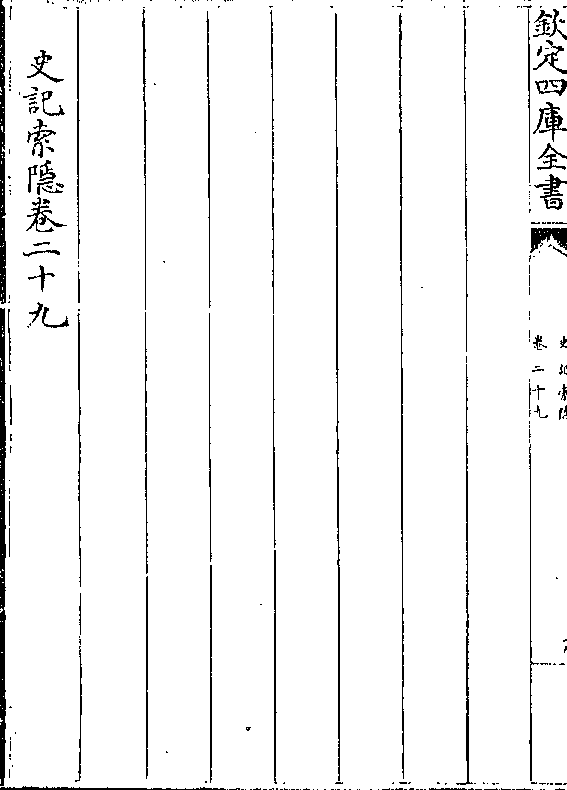 欽定四庫全書
史記索隱
卷二十九
史記索隱卷二十九